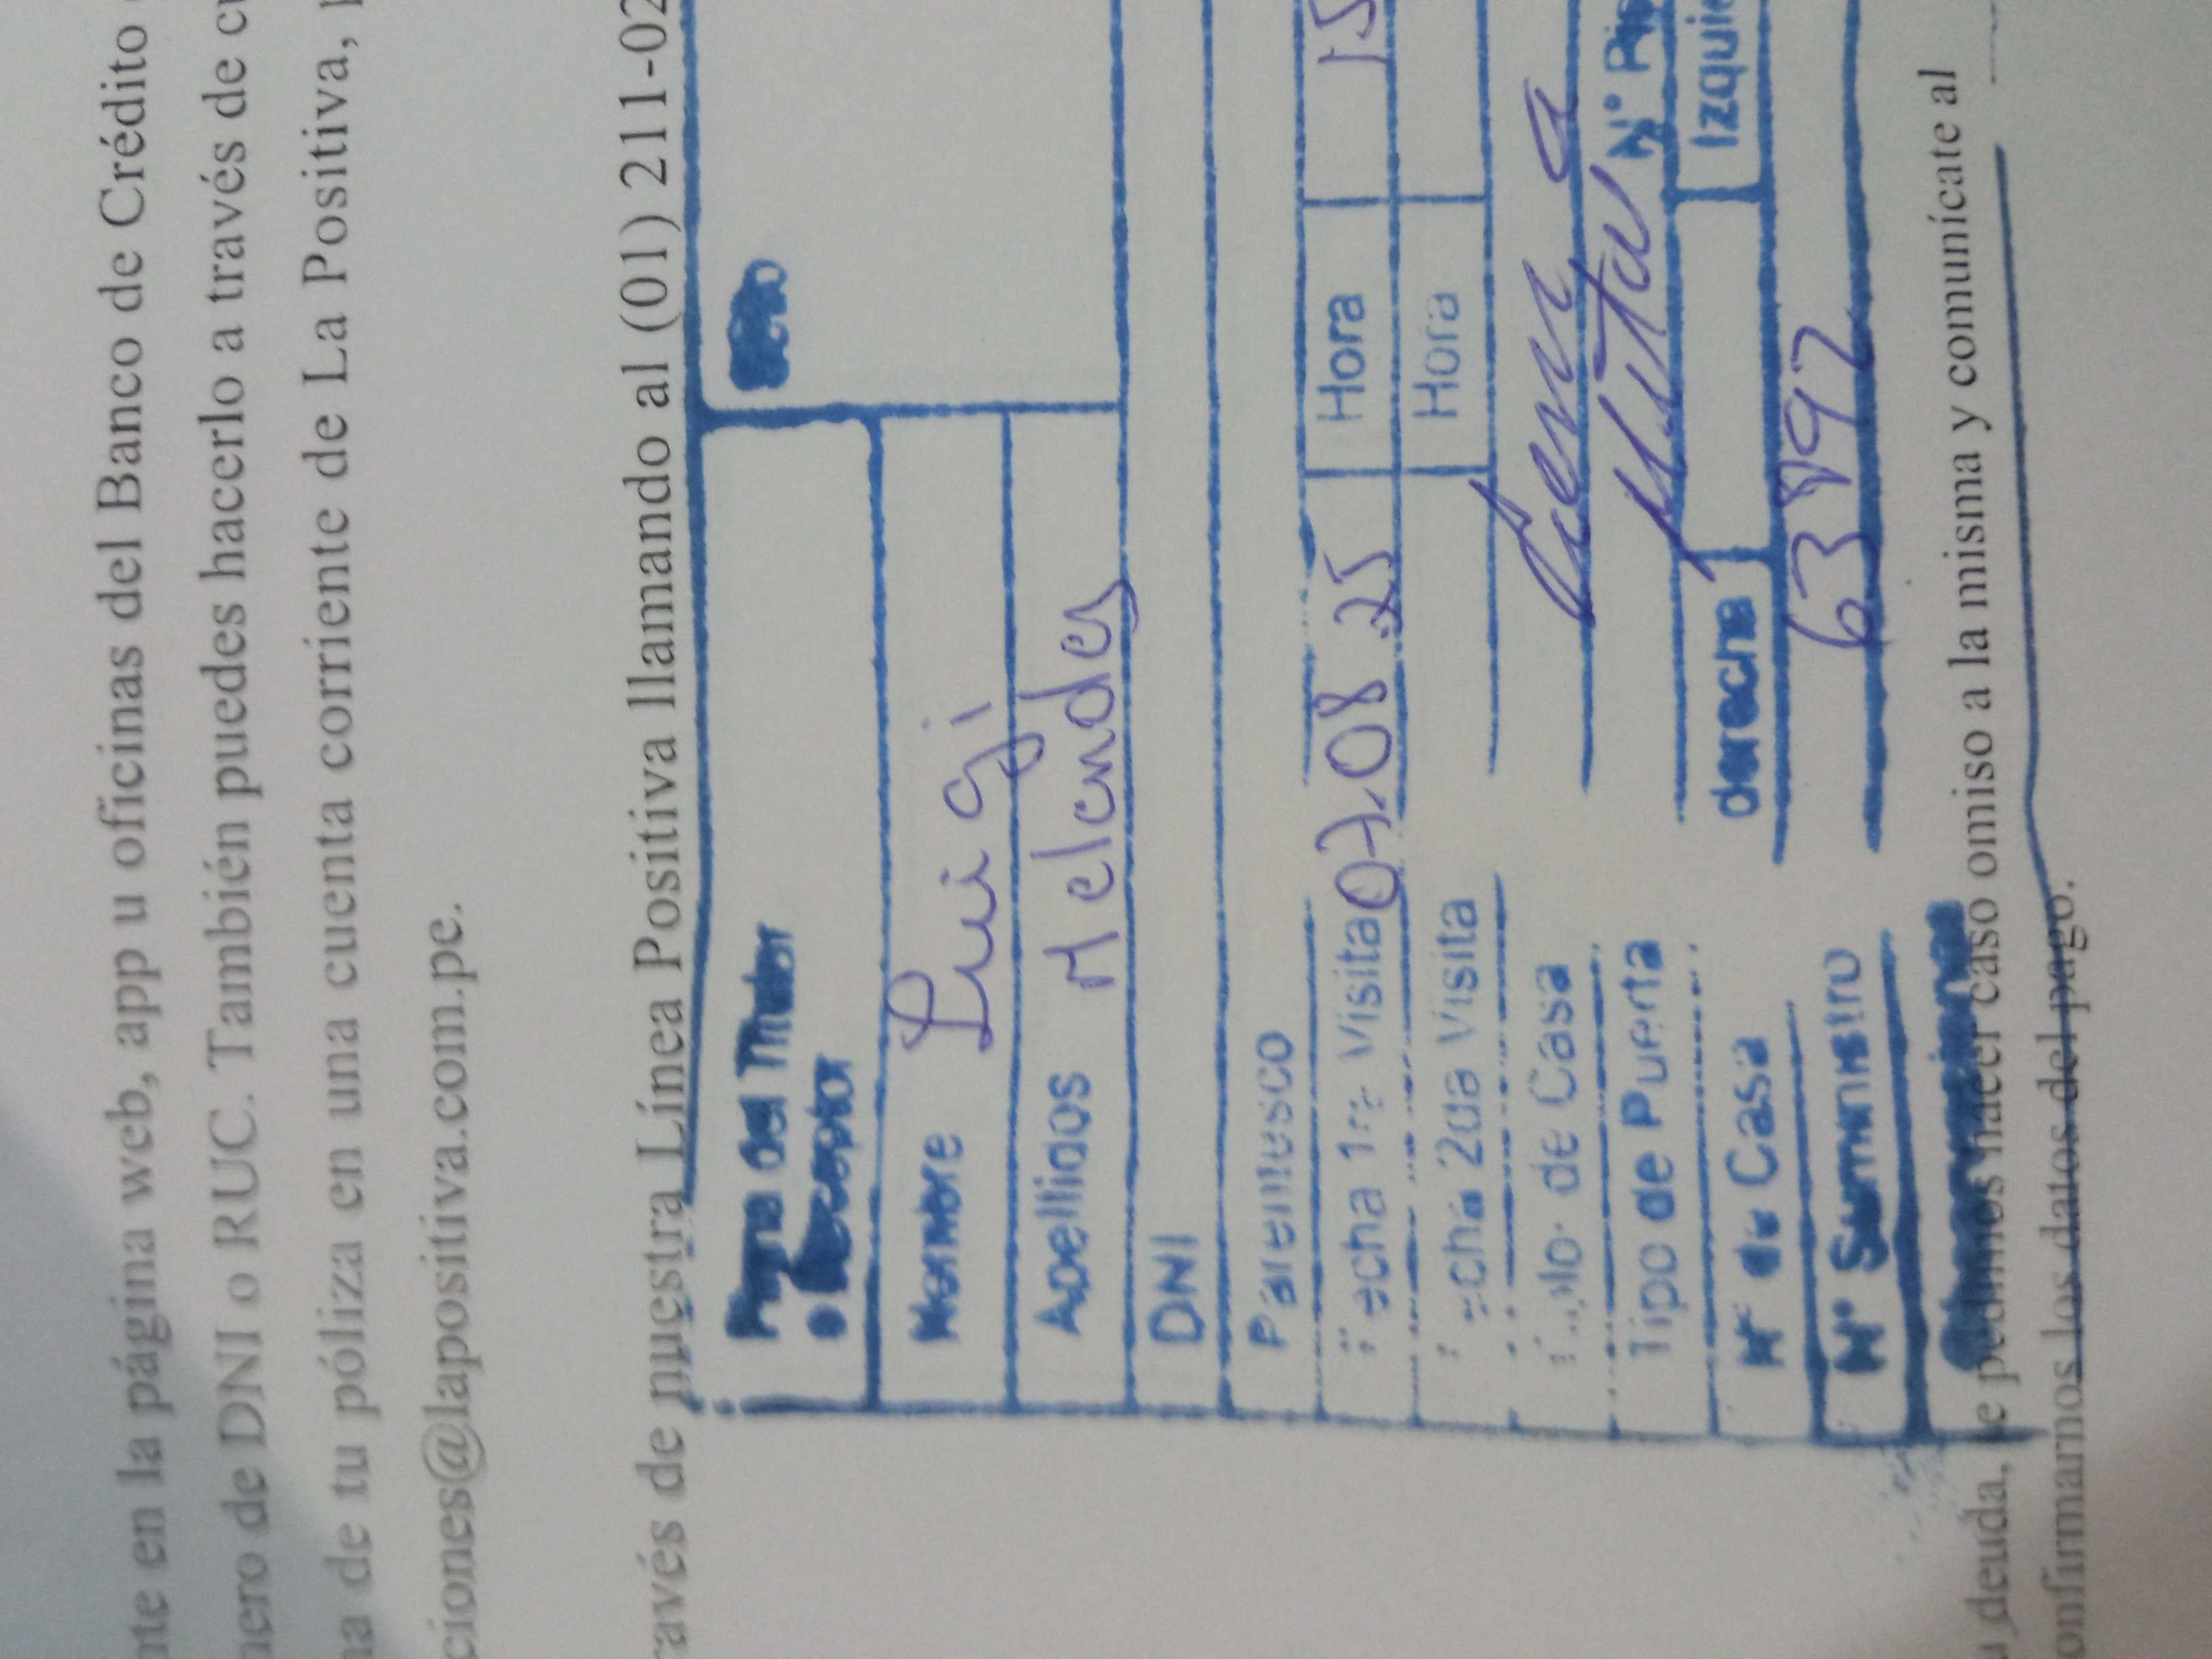 nte en la página web, app u oficinas del Banco de Crédito
nero de DNI o RUC. También puedes hacerlo a través de cu
na de tu póliza en una cuenta corriente de La Positiva,
ciones@lapositiva.com.pe.
ravés de nuestra Línea Positiva llamando al (01) 211-02
Firma del Titular
o Receptor
Sello
Nombre Luigi
Apellidos Melendes
DNI
Parentesco
Fecha 1ra Visita 07.08.25 Hora 15
Fecha 2da Visita Hora
Color de Casa
Tipo de Puerta N° Pis
N° de Casa derecha Izquie
N° Suministro 63892
Observaciones
u deuda, te pedimos hacer caso omiso a la misma y comunícate al
onfirmarnos los datos del pago.